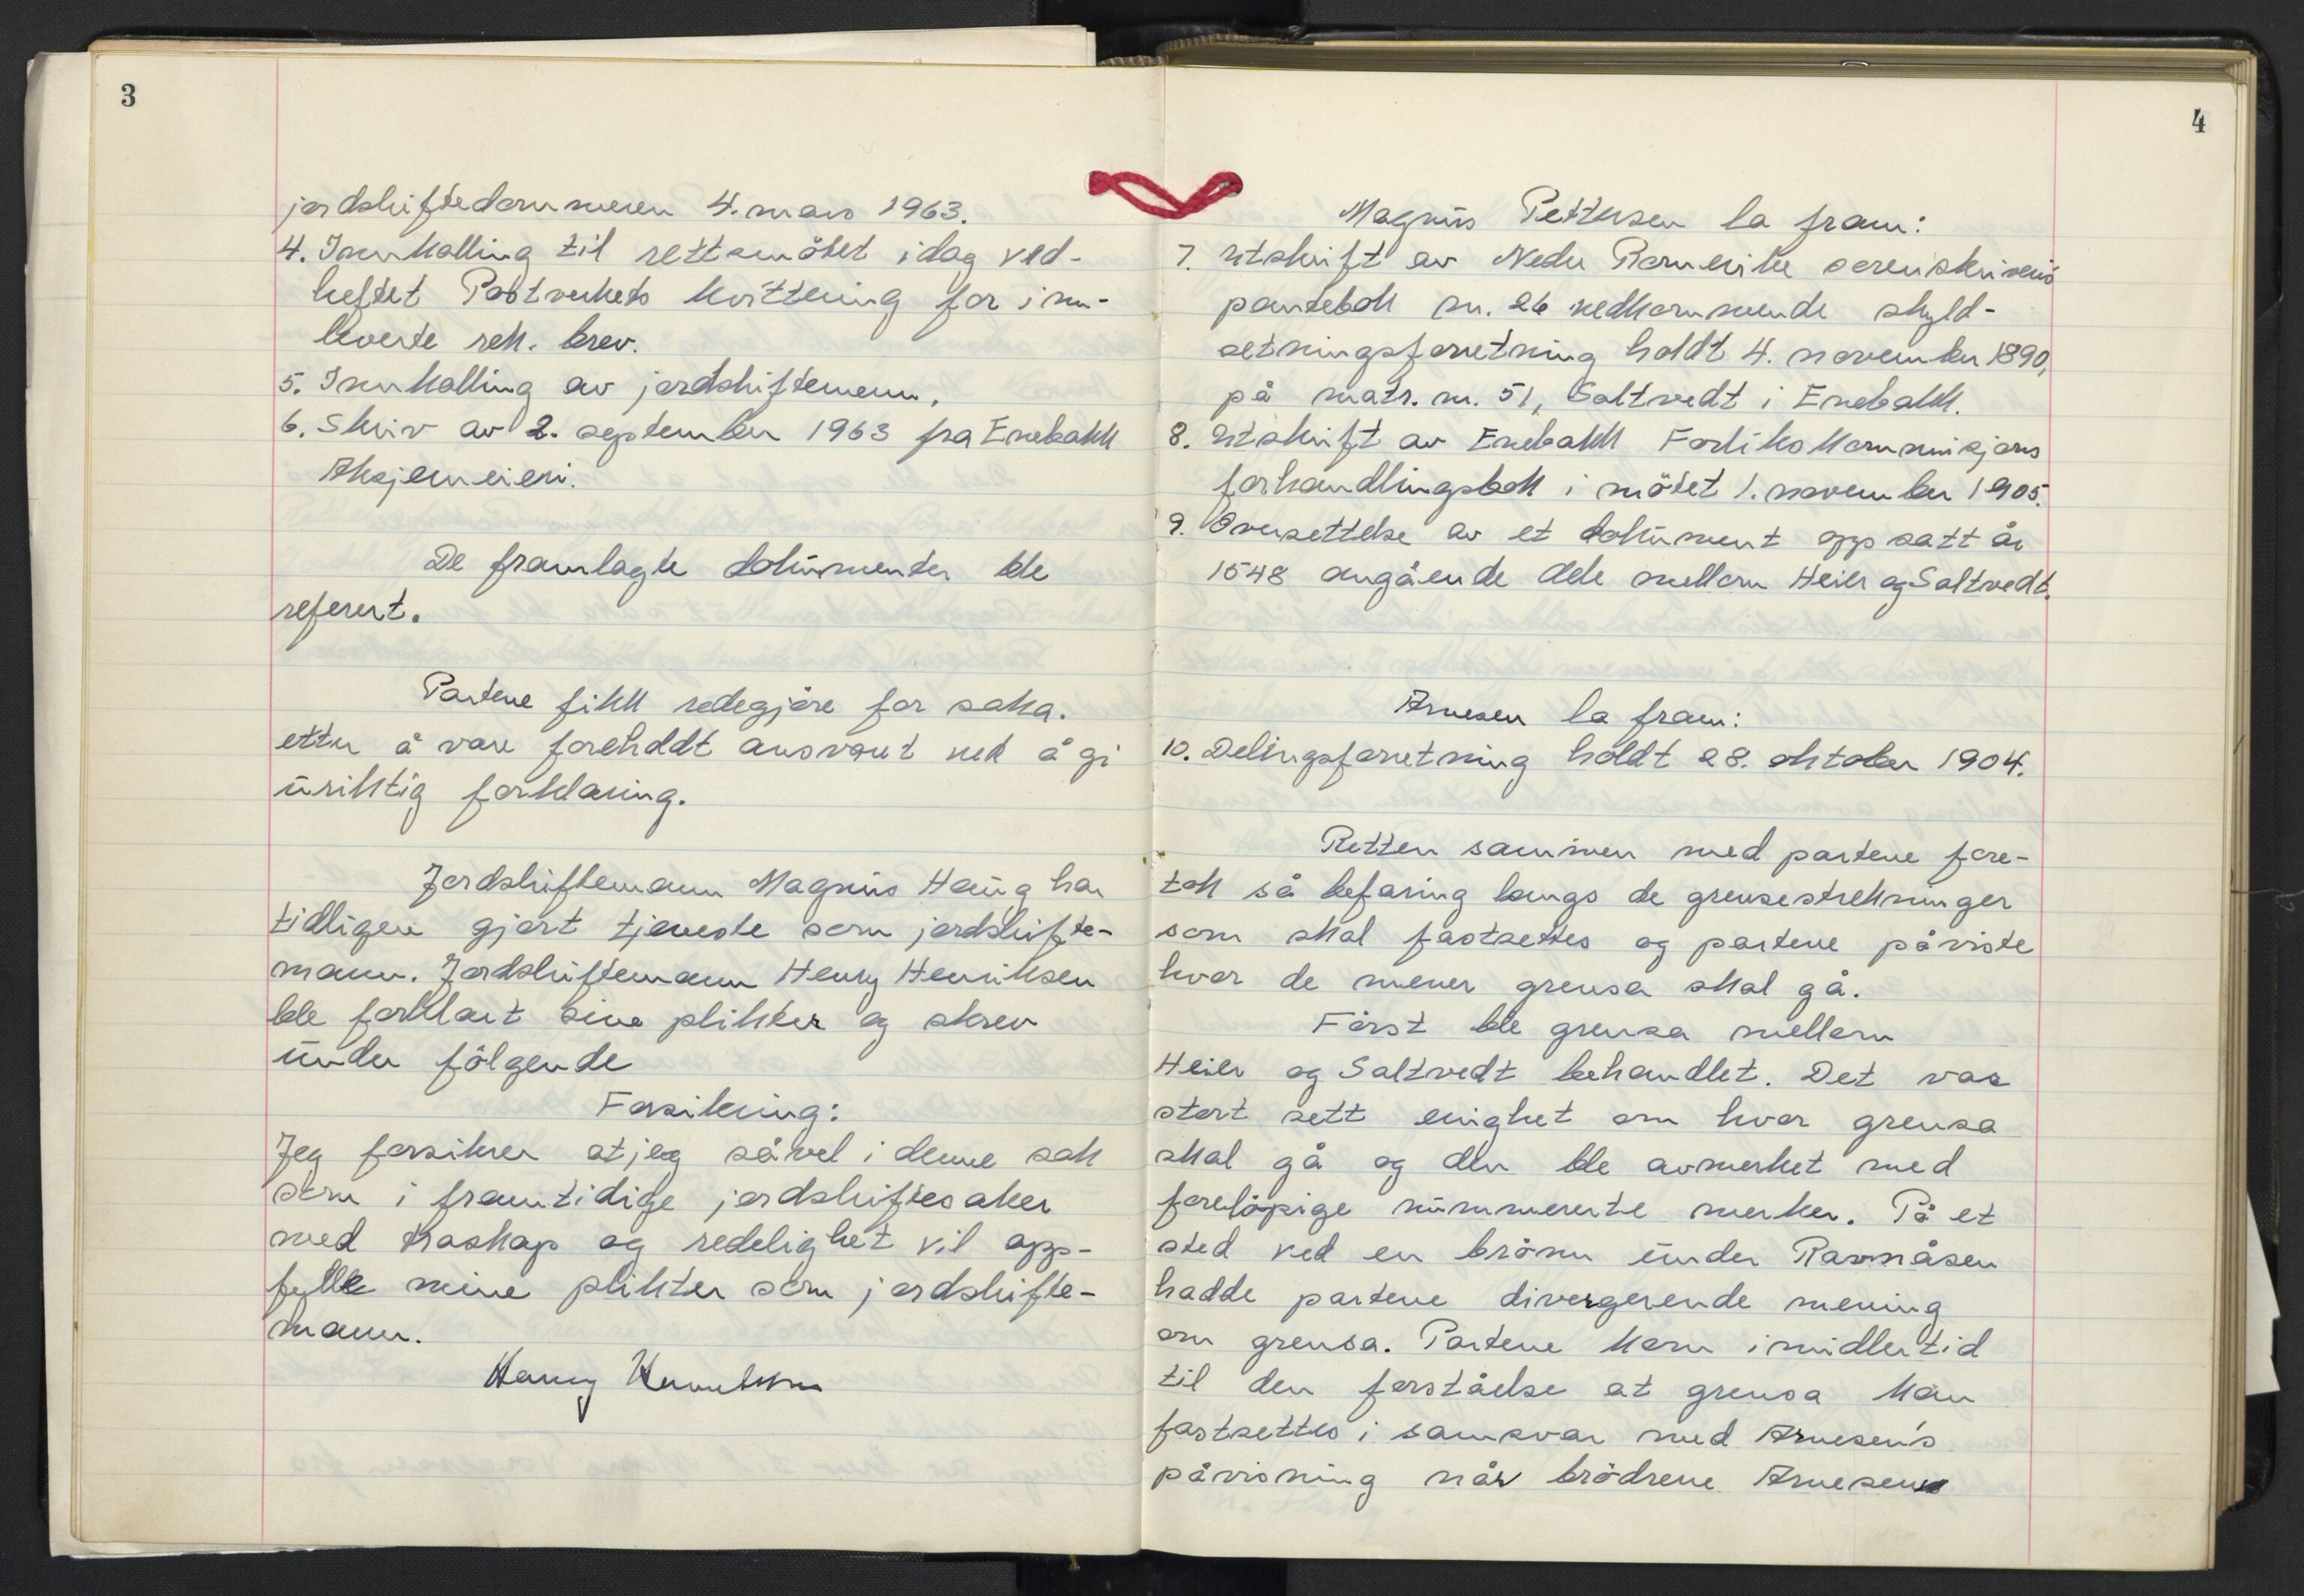 3
jordskiftedommeren 4. mars 1963.
4. Innkalling til rettsmötet idag ved-
heftet Postverkets kvittering for inn-
leverte rek. brev.
5. Innkalling av jordskiftemenn.
6. Skriv av 2. september 1963 fra Enebakk
Aksjemeieri.
De framlagte dokumenter ble
referert.
Partene fikk redegjöre for saka.
etter å være foreholdt ansvaret ved å gi
uriktig forklaring.
Jordskiftemann Magnus Haug har
tidligere gjort tjeneste som jordskifte-
mann. Jordskiftemann Henry Henriksen
ble forklart sine plikter og skrev
under fölgende
Forsikring:
Jeg forsikrer at jeg såvel i denne sak
som i framtidige jordskiftesaker
med troskap og redelighet vil opp-
fylle mine plikter som jordskifte-
mann.
Henry Henriksen
4
Magnus Pettersen la fram:
7. Utskrift av Nedre Romerike sorenskrivers
pantebok nr. 26 vedkommende skyld-
setningsforretning holdt 4. november 1890,
på matr. nr. 51, Saltvedt i Enebakk.
8. Utskrift av Enebakk Forlikskommisjons
forhandlingsbok i mötet 1. november 1905.
9. Oversettelse av et dokument oppsatt år
1548 angående dele mellom Heier og Saltvedt.
Arnesen la fram:
10. Delingsforretning holdt 28. oktober 1904.
Retten sammen med partene fore-
tok så befaring langs de grensestrekninger
som skal fastsettes og partene påviste
hvor de mener grensa skal gå.
Först ble grensa mellom
Heier og Saltvedt behandlet. Det var
stort sett enighet om hvor grensa
skal gå og den ble avmerket med
forelöpige nummererte merker. På et
sted ved en brönn under Ravnåsen
hadde partene divergerende mening
om grensa. Partene kom imidlertid
til den forståelse at grensa kan
fastsettes i samsvar med Arnesen's
påvisning når brödrene Arnesen